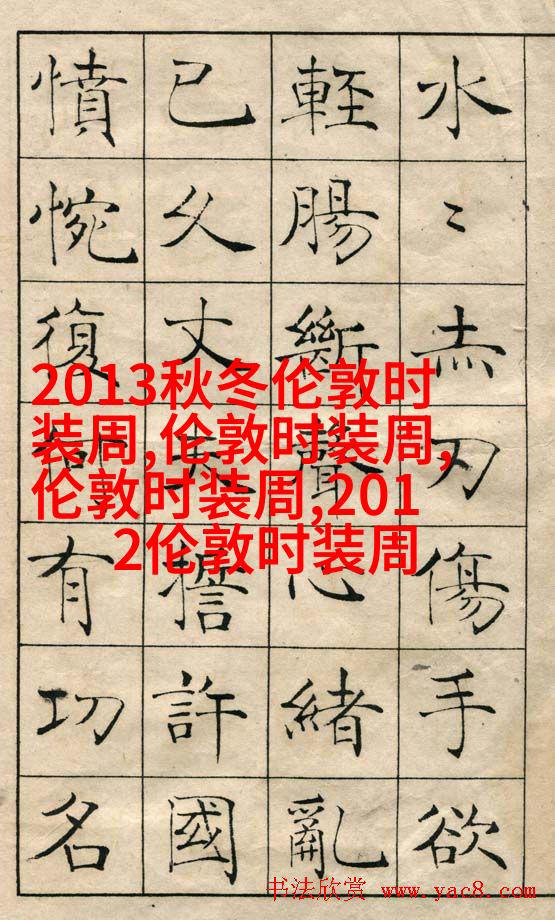 水〻赤刃傷手欲
輕腸斷聲心緒亂
已久丈誓許國
憤惋復有功名
2013秋冬伦敦时
装周,伦敦时装周,
伦敦时装周,201
2伦敦时装周
书法欣赏 www.yac8.com